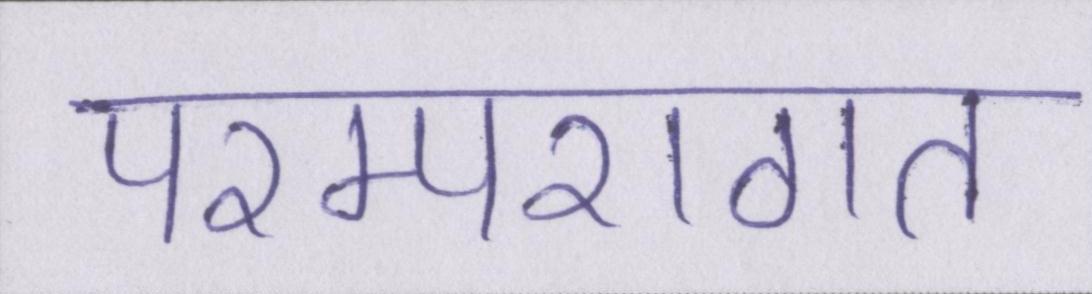 परम्परागत